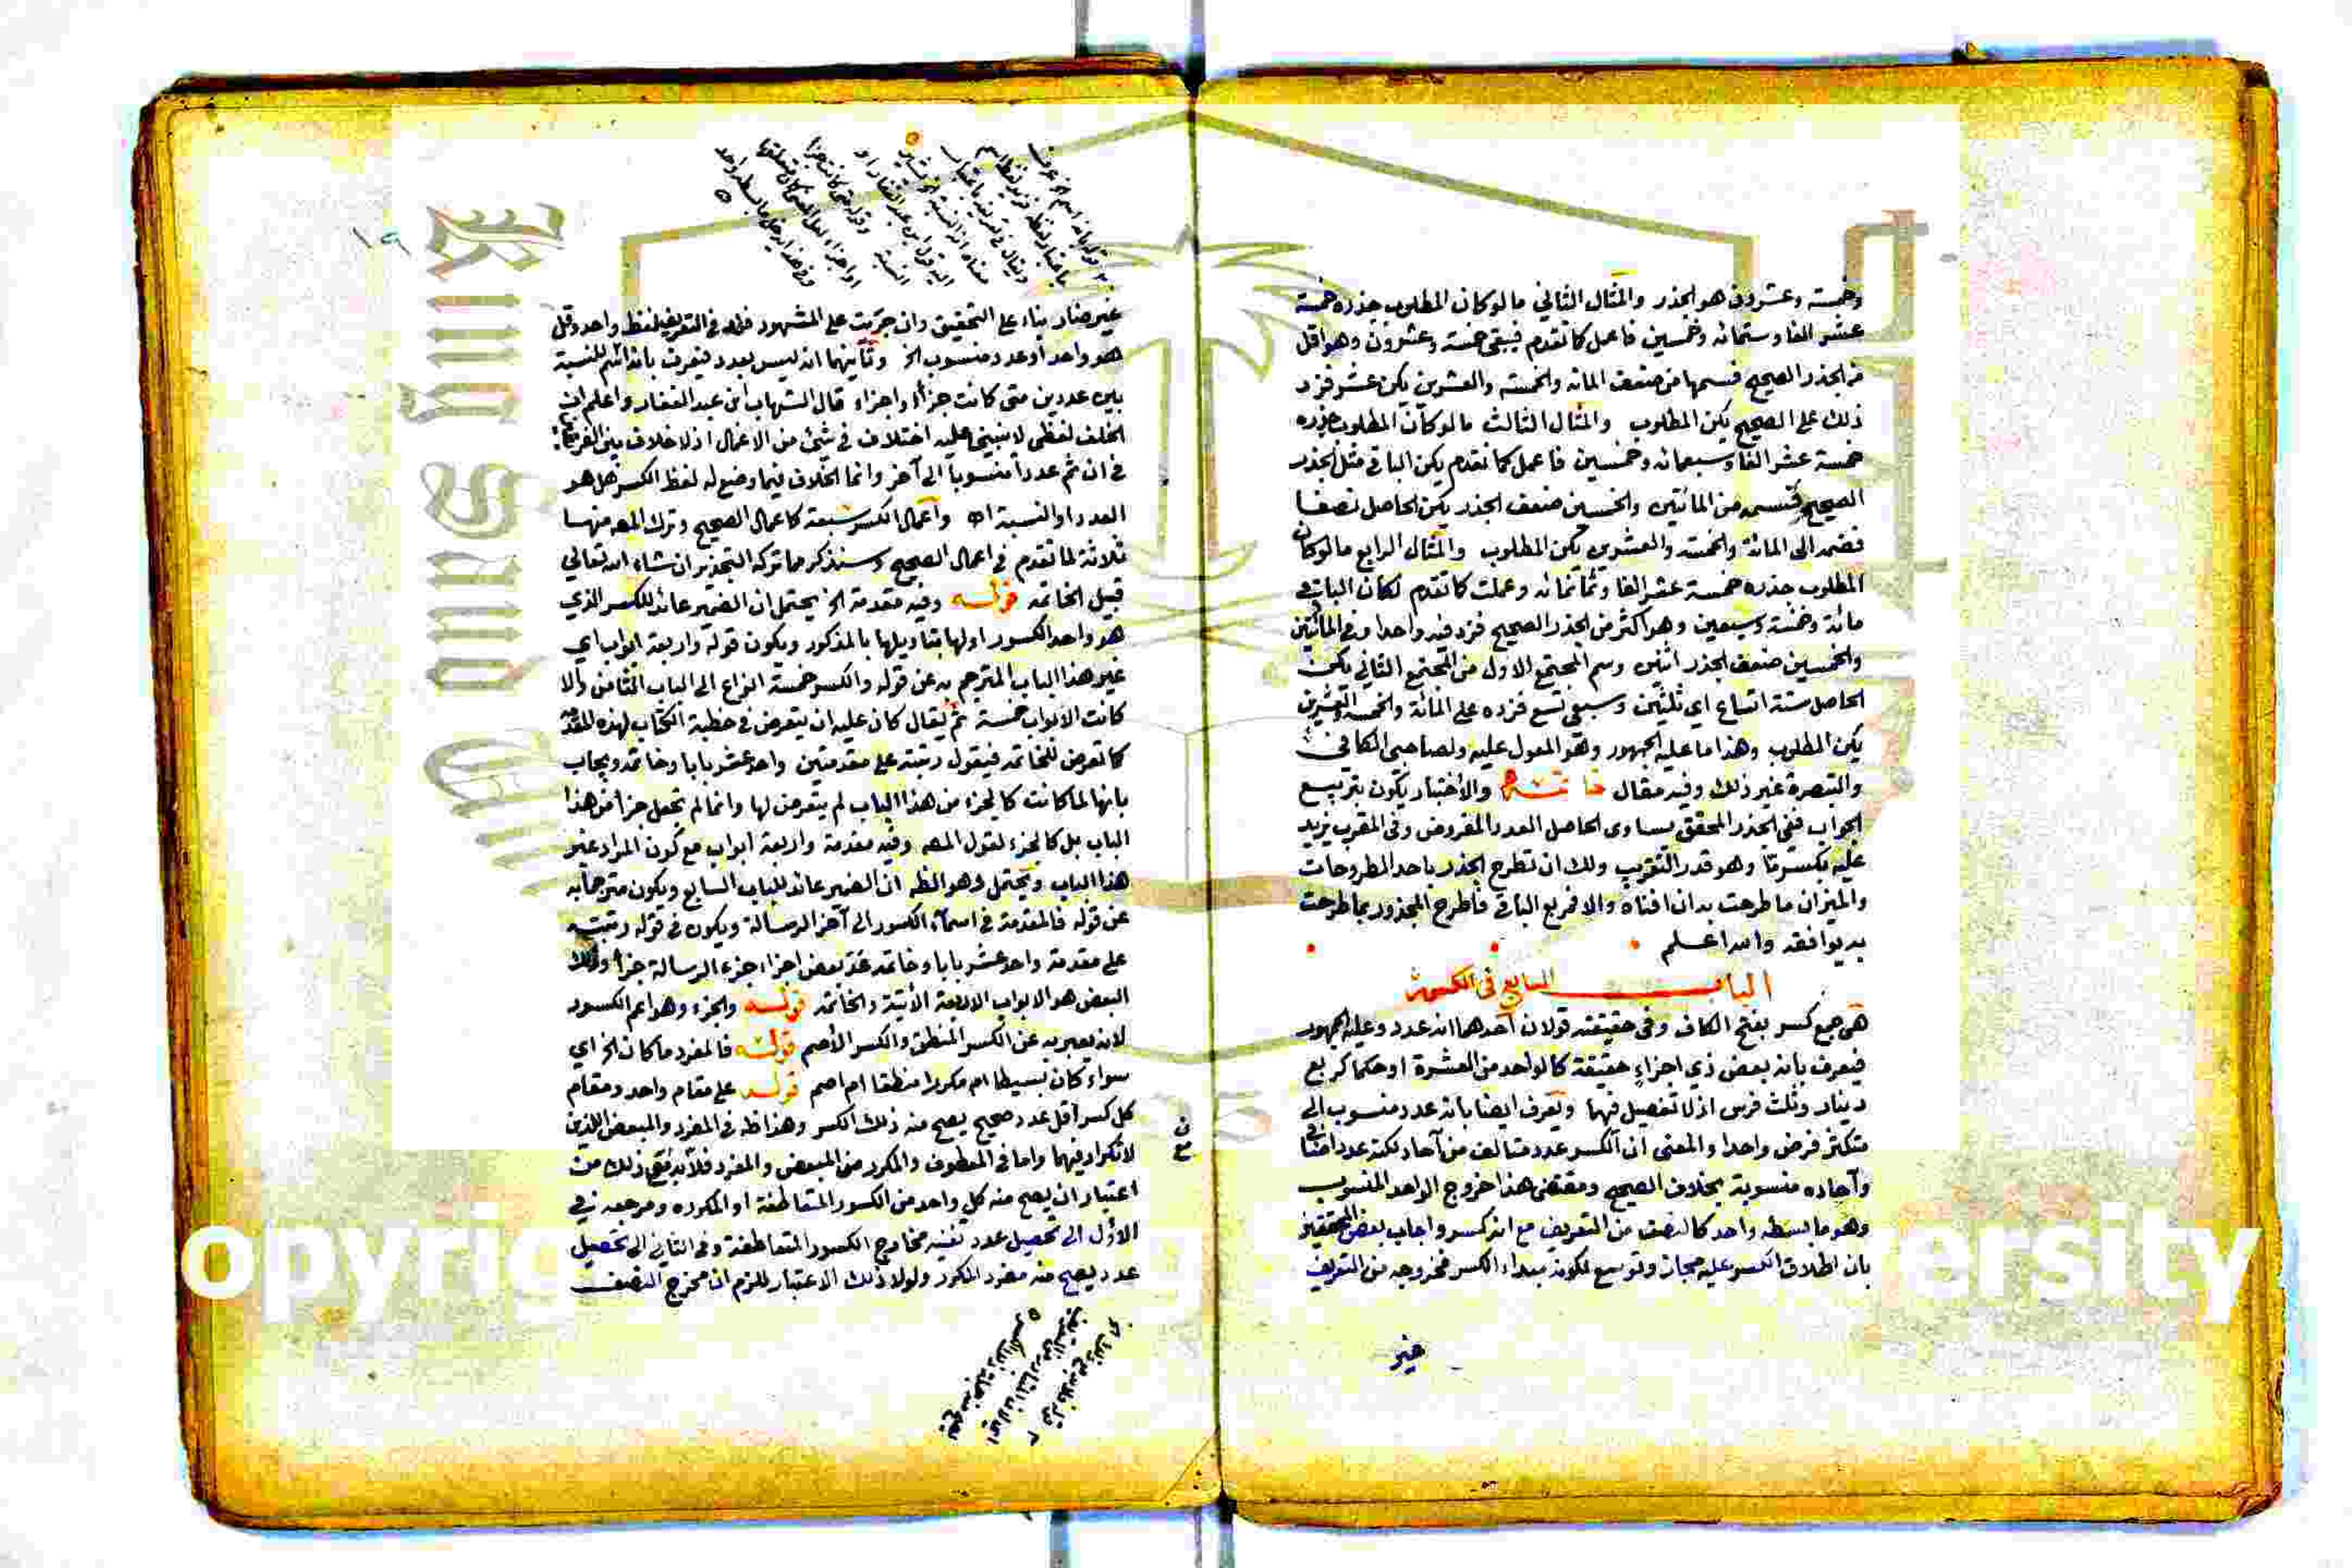 وخمسة وعشرون هو الجذر والمثال الثاني ما لو كان المطلوب جذره خمسة
عشر الفا وستمائه وخمسين فاعمل كما تقدم فيبقى خمسة وعشرون وهو اقل
من الجذر الصحيح فسمها من ضعف المائه والخمسه والعشرين يكن عشر فزد
ذلك على الصحيح يكن المطلوب والمثال الثالث ما لو كان المطلوب جذره
خمسة عشر الفا وسبعمائه وخمسين فاعمل كما تقدم يكن الباقي مثل الجذر
الصحيح فتسمه من المائتين والخمسين ضعف الجذر يكن الحاصل نصفا
فضمه الى المائة والخمسه والعشرين يكن المطلوب والمثال الرابع ما لو كان
المطلوب جذره خمسة عشر الفا وثمانمائه وعملت كما تقدم لكان الباقي
مائة وخمسة وسبعين وهو اكثر من الجذر الصحيح فزد فيه واحدا وفي المائتين
والخمسين ضعف الجذر اثنين وسم المجتمع الاول من المجتمع الثاني يكن
الحاصل ستة اتساع اي ثلثين وسبعي تسع فزده على المائة والخمسه والعشرين
يكن المطلوب وهذا ما عليه الجمهور وهو المعول عليه ولصاحبي الكافي
والتبصرة غير ذلك وفيه مقال خاتمه والاختبار يكون بتربيع
الجواب ففي الجذر المحقق يساوى الحاصل العدد المفروض وفى المقرب يزيد
عليه بكسر ما وهو قدر التقريب ولك ان تطرح الجذر باحد المطروحات
والميزان ما طرحت به ان افناه والا فربع الباقي فاطرح المجذور بما طرحت
به يوافقه والله اعلم
الباب السابع في الكسور
هى جمع كسر بفتح الكاف وفى حقيقته قولان احدهما انه عدد وعليه الجمهور
فيعرف بانه بعض ذي اجزاء حقيقة كالواحد من العشرة او حكما كربع
دينار وثلث فرس اذ لا تفصيل فيها ويعرف ايضا بانه عدد منسوب الى
متكثر فرض واحدا والمعنى ان الكسر عدد متالف من آحاد لكنه عدد اضافي
وآحاده منسوبة بخلاف الصحيح ومقتضى هذا خروج الواحد المنسوب
وهو ما بسطه واحد كالنصف من التعريف مع انه كسر واجاب بعض المحققين
بان اطلاق الكسر عليه مجاز وتوسع لكونه مبداء الكسر فخروجه من التعريف
غير
غير ضار بناء على التحقيق وان جريت على المشهور فزد في التعريف لفظ واحد وقل
هو واحد او عدد منسوب الخ وثانيهما انه ليس بعدد فيعرف بانه اسم للنسبة
بين عددين متى كانت جزأ او اجزاء قال الشهاب ابن عبد الغفار واعلم ان
الخلف لفظي لا ينبني عليه اختلاف في شئ من الاعمال اذ لا خلاف بين الفريقين
في ان ثم عددا منسوبا الى آخر وانما الخلاف فيما وضع له لفظ الكسر هل هو
العدد او النسبة اه واعمال الكسر سبعة كاعمال الصحيح وترك المص منها
ثلاثة لما تقدم في اعمال الصحيح وسنذكر مما تركه التجذير ان شاء الله تعالى
قبيل الخاتمه قوله وفيه مقدمة الخ يحتمل ان الضمير عائد للكسر الذي
هو واحد الكسور او لها بتاويلها بالمذكور ويكون قوله واربعة ابواب اي
غير هذا الباب المترجم به عن قوله والكسر خمسة انواع الى الباب الثامن والا
كانت الابواب خمسة ثم يقال كان عليه ان يتعرض في خطبة الكتاب لهذه المقدمه
كما تعرض للخاتمه فيقول رتبته على مقدمتين واحد عشر بابا وخاتمه ويجاب
بانها لما كانت كالجزء من هذا الباب لم يتعرض لها وانما لم تجعل جزأ من هذا
الباب بل كالجزء لقول المص وفيه مقدمة واربعة ابواب مع كون المراد غير
هذا الباب ويحتمل وهو الظ ان الضمير عائد للباب السابع ويكون مترجما به
عن قوله فالمقدمة في اسماء الكسور الى آخر الرسالة ويكون في قوله رتبته
على مقدمة واحد عشر بابا وخاتمه عد بعض اجزاء جزء الرسالة جزأ وذلك
البعض هو الابواب الاربعة الآتية والخاتمه قوله والجزء وهو اعم الكسور
لانه يعبر به عن الكسر المنطق والكسر الاصم قوله فالمفرد ما كان الخ اي
سواء كان بسيطا ام مكررا منطقا ام اصم قوله على مقام واحد ومقام
كل كسر اقل عدد صحيح يصح منه ذلك الكسر وهذا ظ في المفرد والمبعض اللذين
لا تكرار فيهما واما في المعطوف والمكرر من المبعض والمفرد فلا بد مع ذلك من
اعتبار ان يصح منه كل واحد من الكسور المتعاطفة او المكرره ومرجعه في
الاول الى تحصيل عدد تفنيه مخارج الكسور المتعاطفة وفي الثاني الى تحصيل
عدد يصح منه مفرد المكرر ولولا ذلك الاعتبار للزم ان مخرج النصف